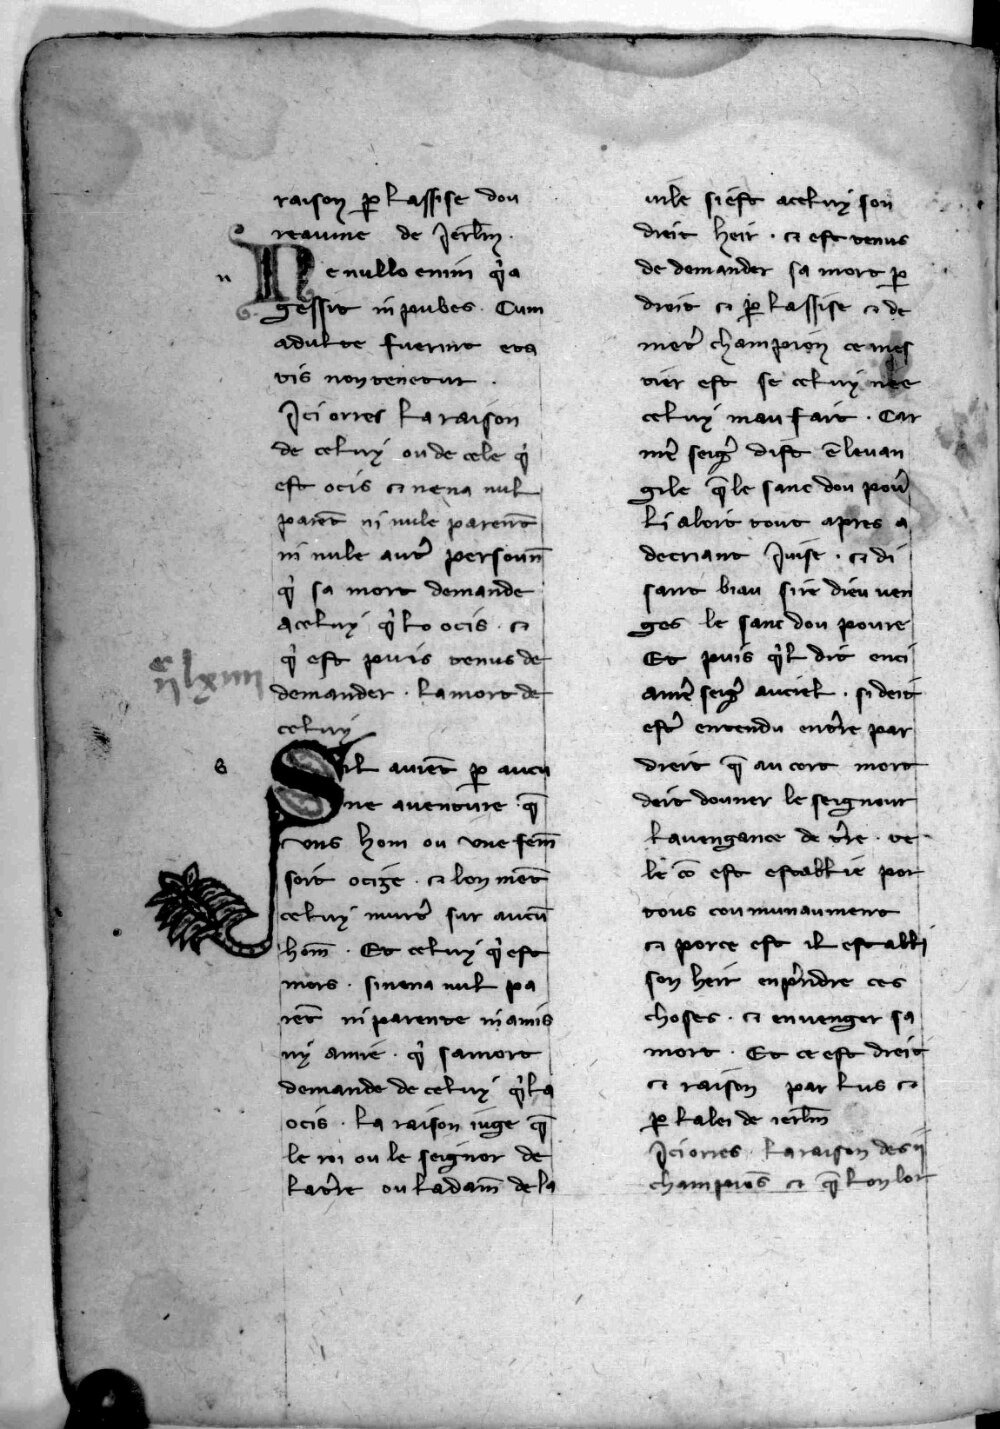 raison ꝑ lassise dou
reaume de Jerl̃m.
n
Ne nullo enim q̃ a
gessit in pubes. Cum
adulte fuerint eta
tis non tenetur.
Ici orres la raison
de celuy ou de cele q̃
est ocis ⁊ nena nul
parẽt ni nule parẽt
ni nule autr̃ persoun̄
q̃ sa mort demande
a celuy q̃ lo ocis. ⁊
q̃ est puis venus de
demander. la mort de
celuy
s
Sil auiẽt ꝑ aucu
ne auenture q̃
vns hom ou vne fem̄
soit ocize. ⁊ lon mẽt
celuy murtr̃ sur aucũ
hom̄. Et celuy q̃ est
mors. si nena nul pa
rẽt ni parente ni amis
ny amie. q̃ sa mort
demande de celuy q̃ la
ocis. la raison iuge q̃
le roi ou le seignor de
la tr̃re ou la dam̄ de la
vile si est a celuy son
dreit heir. ⁊ est tenus
de demander sa mort ꝑ
droit ⁊ ꝑ lassise ⁊ de
metr̃ champion ce mes
tier est se celuy nee
celuy mau fait. Car
nr̃e seigr̃ dist ẽ leuan
gile q̃ le sanc dou pour̃
li aloit tout apres a
decriant Juise. ⁊ di
sant biau sire dieu ven
ges le sanc dou poure
Et puis q̃l dit enci
a nr̃e seigr̃ au ciel. si deit
estr̃ entendu en tr̃re par
dreit q̃ au cort mort
deit douner le seignour
la vengance de tr̃re. te
le cõ est establie por
tous coumunaument
⁊ por ce est il establi
son heir en pr̃ndre ces
choses. ⁊ en venger sa
mort. Et ce est dreit
⁊ raison par lus ⁊
ꝑ la lei de ierl̃m
Ici orres la raison des ij
champiõs ⁊ q̃ lon lor